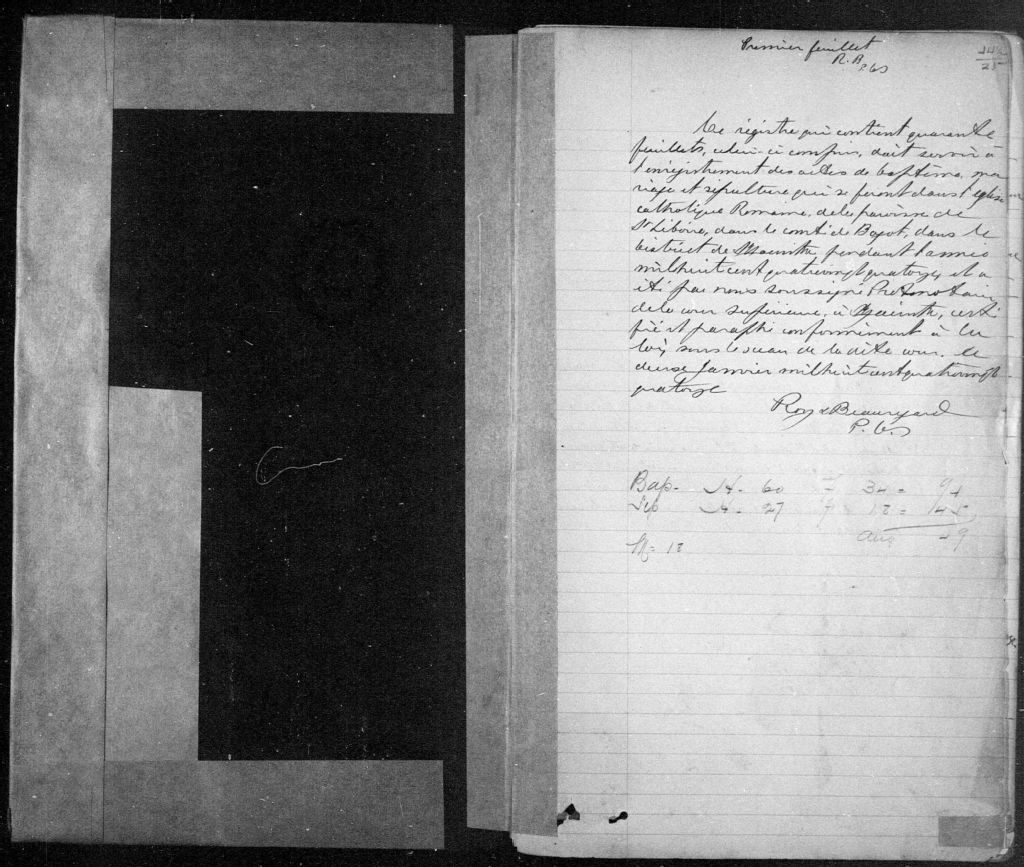 Premier feuillet
R. B
P. C. S
Ce régistre qui contient quarante
feuillets, celui-ci compris, doit servir à
l'enrégistrement des actes de baptême, ma
riage et sépulture qui se feront dans l'église
catholique Romaine, de la paroisse de
St Liboire, dans le comté de Bagot, dans le
District de St Hyacinthe pendant l'année
mil huit cent quatrevingt quatorze, et a
été par nous soussigné Protonotaire
de la cour supérieure, à St Hyacinthe, certi
fié et paraphé conformément à la
loi, sous le sceau de la dite cour. Le
douze Janvier mil huit cent quatrevingt
quatorze
Roy & Beauregard
P. C. S
Bap - 60 34 = 94
Sep - 27 18 = 45
M = 18